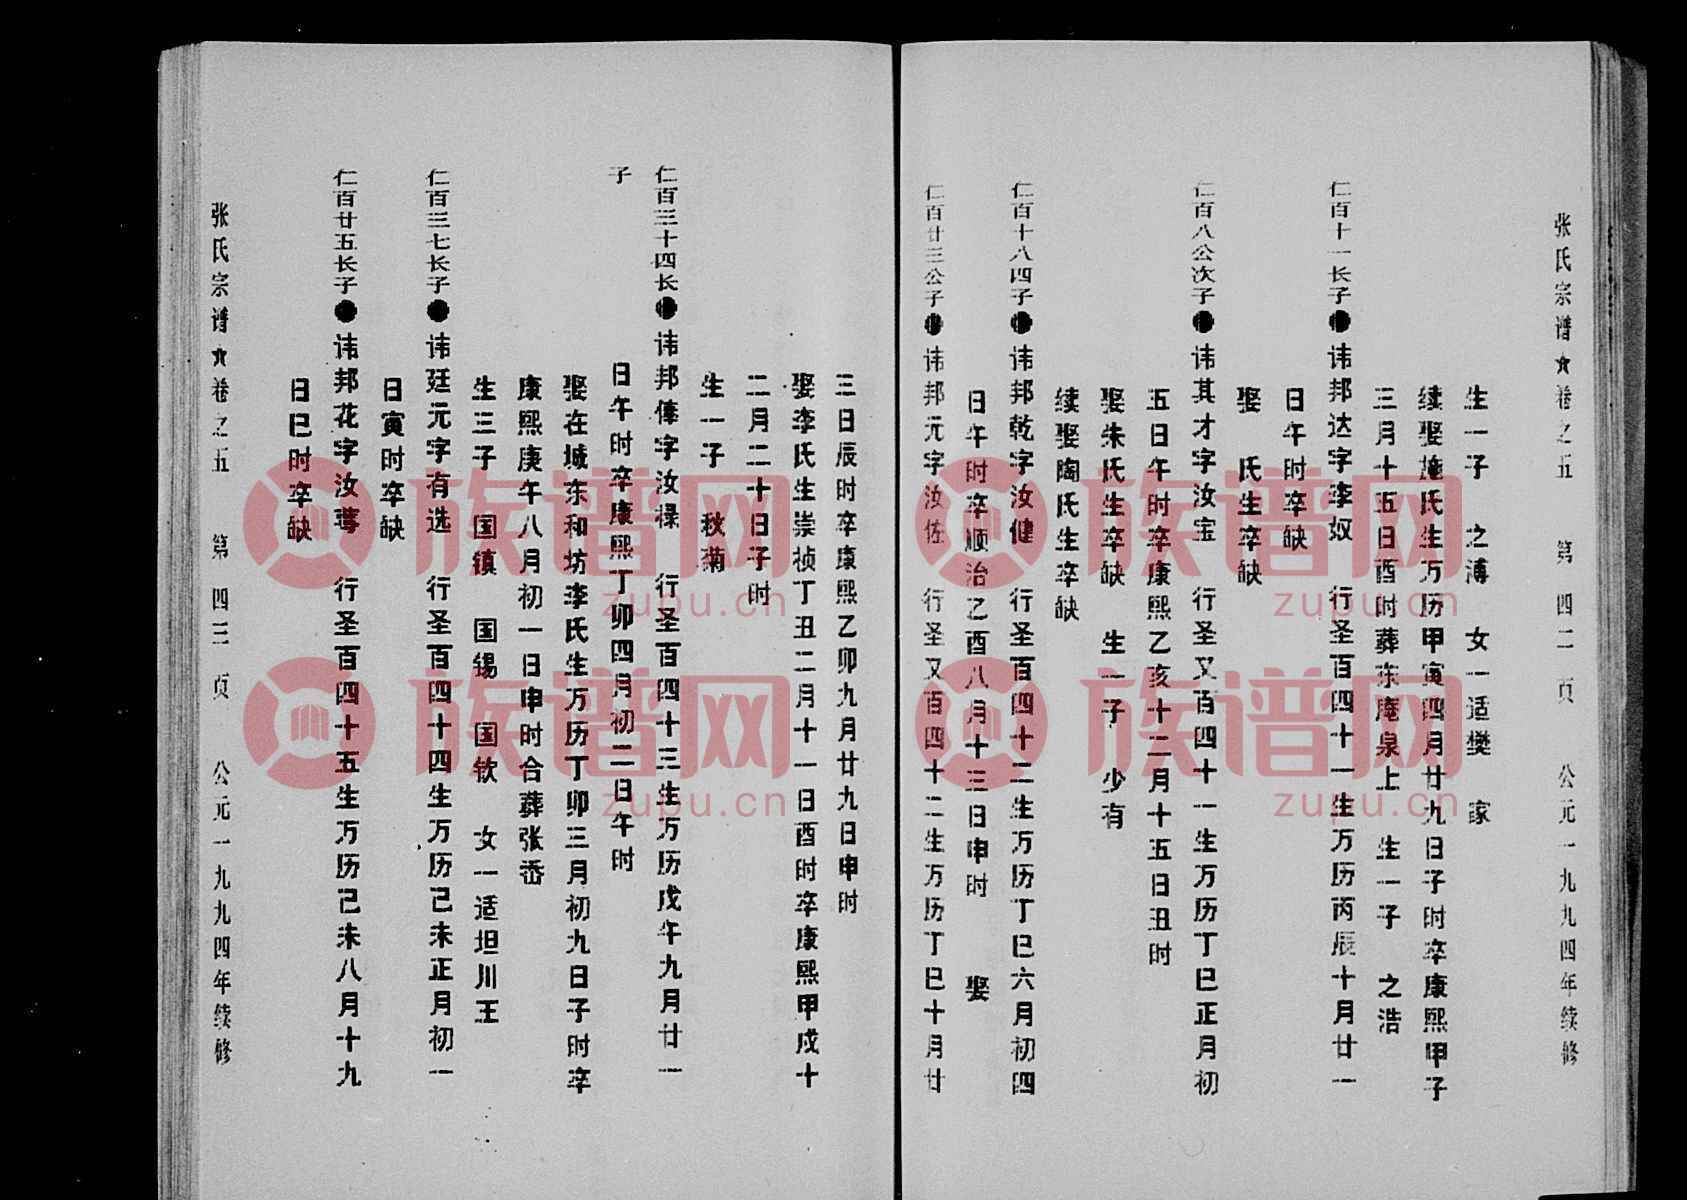 张氏宗谱★卷之五 第四二页 公元一九九四年续修
生一子 之溥 女一适樊 家
续娶施氏生万历甲寅四月廿九日子时卒康熙甲子
三月十五日酉时葬东庵泉上 生一子 之浩
仁百十一长子●讳邦达字李奴 行圣百四十一生万历丙辰十月廿一
日午时卒缺
娶 氏生卒缺
仁百八公次子●讳其才字汝宝 行圣又百四十一生万历丁巳正月初
五日午时卒康熙乙亥十二月十五日丑时
娶朱氏生卒缺 生一子 少有
续娶陶氏生卒缺
仁百十八四子●讳邦乾字汝健 行圣百四十二生万历丁巳六月初四
日午时卒顺治乙酉八月十三日申时 娶
仁百廿三公子●讳邦元字汝佐 行圣又百四十二生万历丁巳十月廿
三日辰时卒康熙乙卯九月廿九日申时
娶李氏生崇祯丁丑二月十一日酉时卒康熙甲戌十
二月二十日子时
生一子 秋菊
仁百三十四长子●讳邦俸字汝禄 行圣百四十三生万历戊午九月廿一
日午时卒康熙丁卯四月初二日午时
娶在城东和坊李氏生万历丁卯三月初九日子时卒
康熙庚午八月初一日申时合葬张岙
生三子 国镇 国锡 国钦 女一适坦川王
仁百三七长子●讳廷元字有选 行圣百四十四生万历己未正月初一
日寅时卒缺
仁百廿五长子●讳邦花字汝 行圣百四十五生万历己未八月十九
日巳时卒缺
张氏宗谱★卷之五 第四三页 公元一九九四年续修
族谱网
zupu.cn
族谱网
zupu.cn
族谱网
zupu.cn
族谱网
zupu.cn